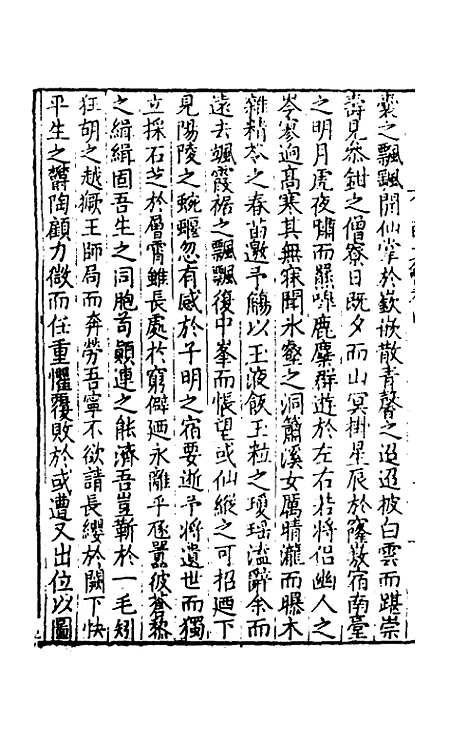 囊之飄飄開仙掌於嶔嵌散青聲之迢迢披白雲而躋崇
壽見叅鉗之僧寮日既夕而山冥掛星辰於窿數宿南臺
之明月虎夜嘯而羆嘷鹿麋群遊於左右若將侣幽人之
岑寥迥髙寒其無寐聞氷壑之洞簫溪女厲晴瀧而曝术
雜精苓之春苗邀予觴以玉液飯玉粒之瓊瑶溘辭余而
遠去颯霞裾之飄飄復中峯而悵望或仙縱之可招廼下
見陽陵之蜿蜒忽有感於子明之宿要逝予將遺世而獨
立採石芝於層霄雖長處於窮僻廼永離乎豗囂彼蒼黎
之緝緝固吾生之同胞苟顛連之能濟吾豈靳於一毛矧
狂胡之越獗王師局而奔勞吾寧不欲請長纓於闕下快
平生之欝陶顧力微而任重懼覆敗於或遭又出位以圖